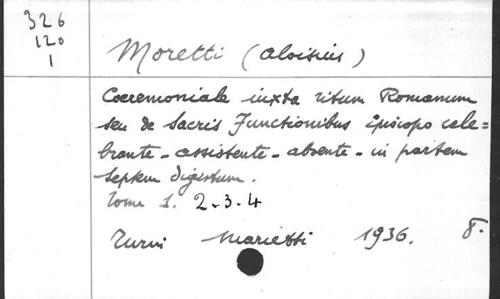 326
120
1
Moretti (Aloisius)
Coeremoniale iuxta ritum Romanum
seu de Sacris Functionibus Episcopo cele=
brante - assistente - absente - in partem
septem digestum.
Tome 1. 2-3-4
Turin Marietti 1936. 8.